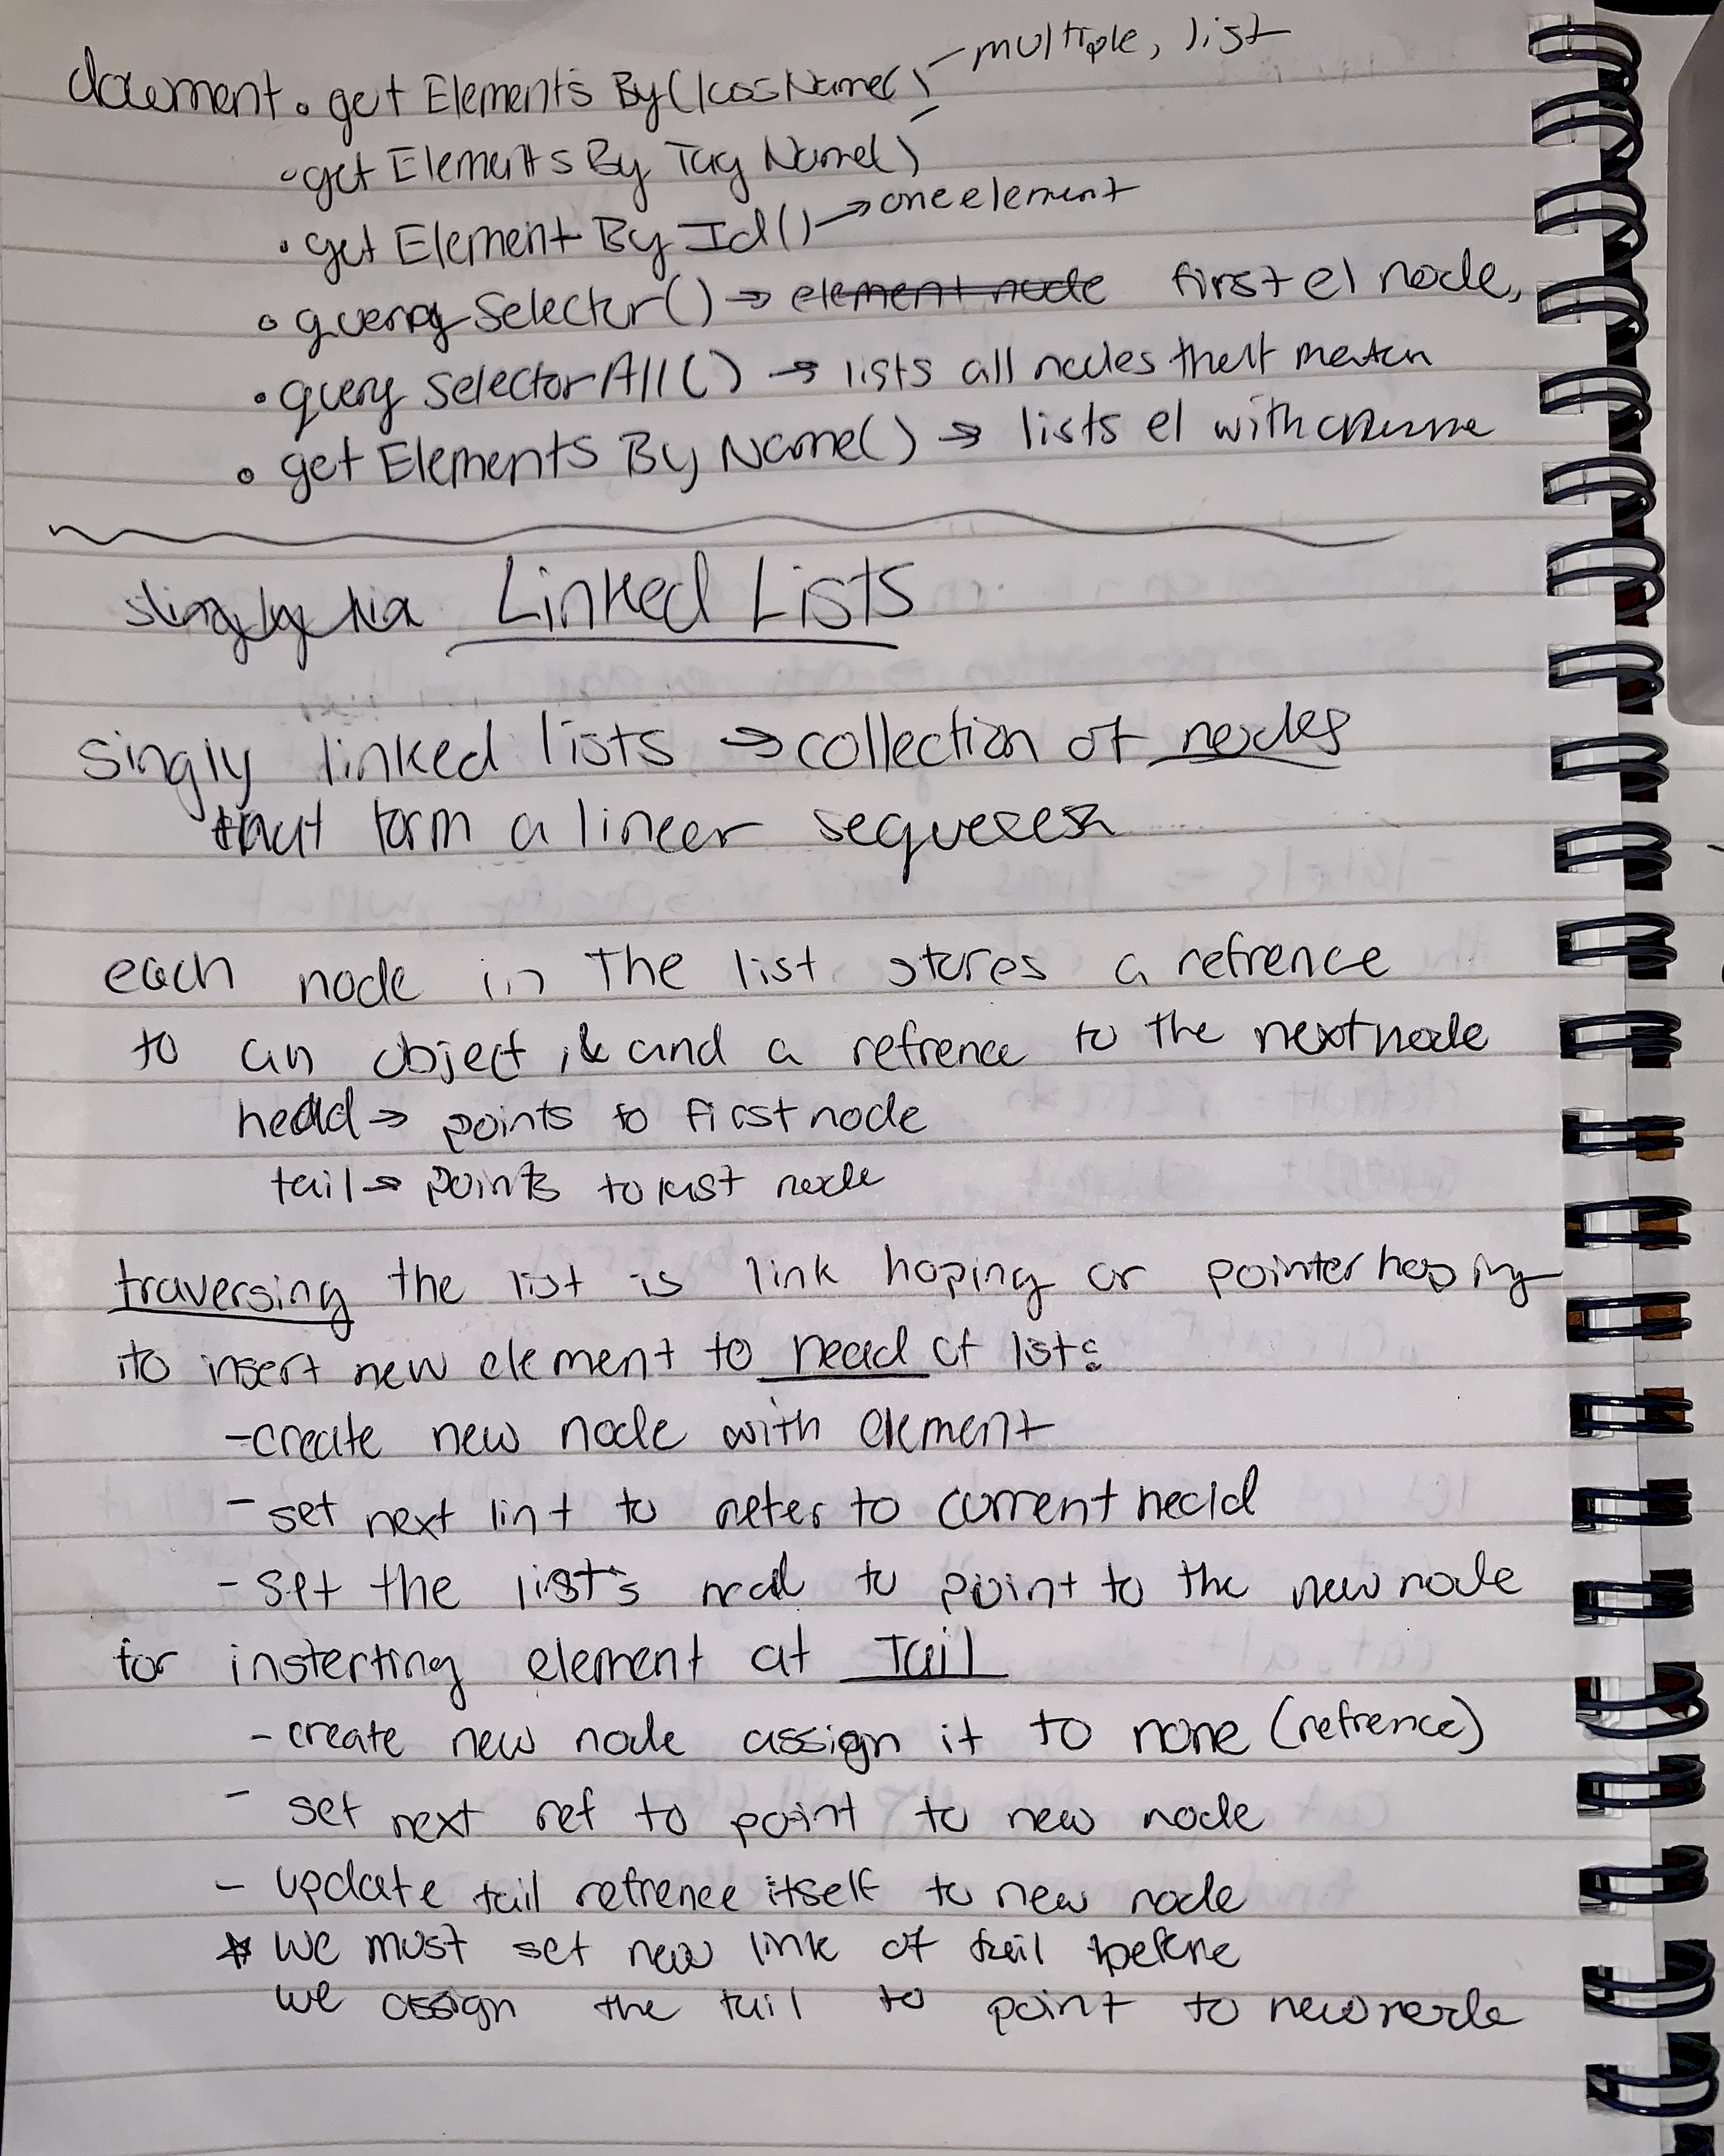 document.getElementsByClassName() - multiple, list
.getElementsByTagName()
.getElementById() → one element
.querySelector() → element node first el node,
.querySelectorAll() → lists all nodes that match
.getElementsByName() → lists el with
Linked Lists
singly linked lists → collection of nodes
that form a linear
each node in the list stores a refrence
to an object, & and a refrence to the next node
head → points to first node
tail → points to last node
traversing the list is link hoping or pointer hopping
to insert new element to head of list:
- create new node with element
- set next lint to refer to current head
- set the list's head to point to the new node
for insterting element at Tail
- create new node assign it to none (refrence)
- set next ref to point to new node
- update tail refrence itself to new node
* we must set new link of tail before
we assign the tail to point to new node